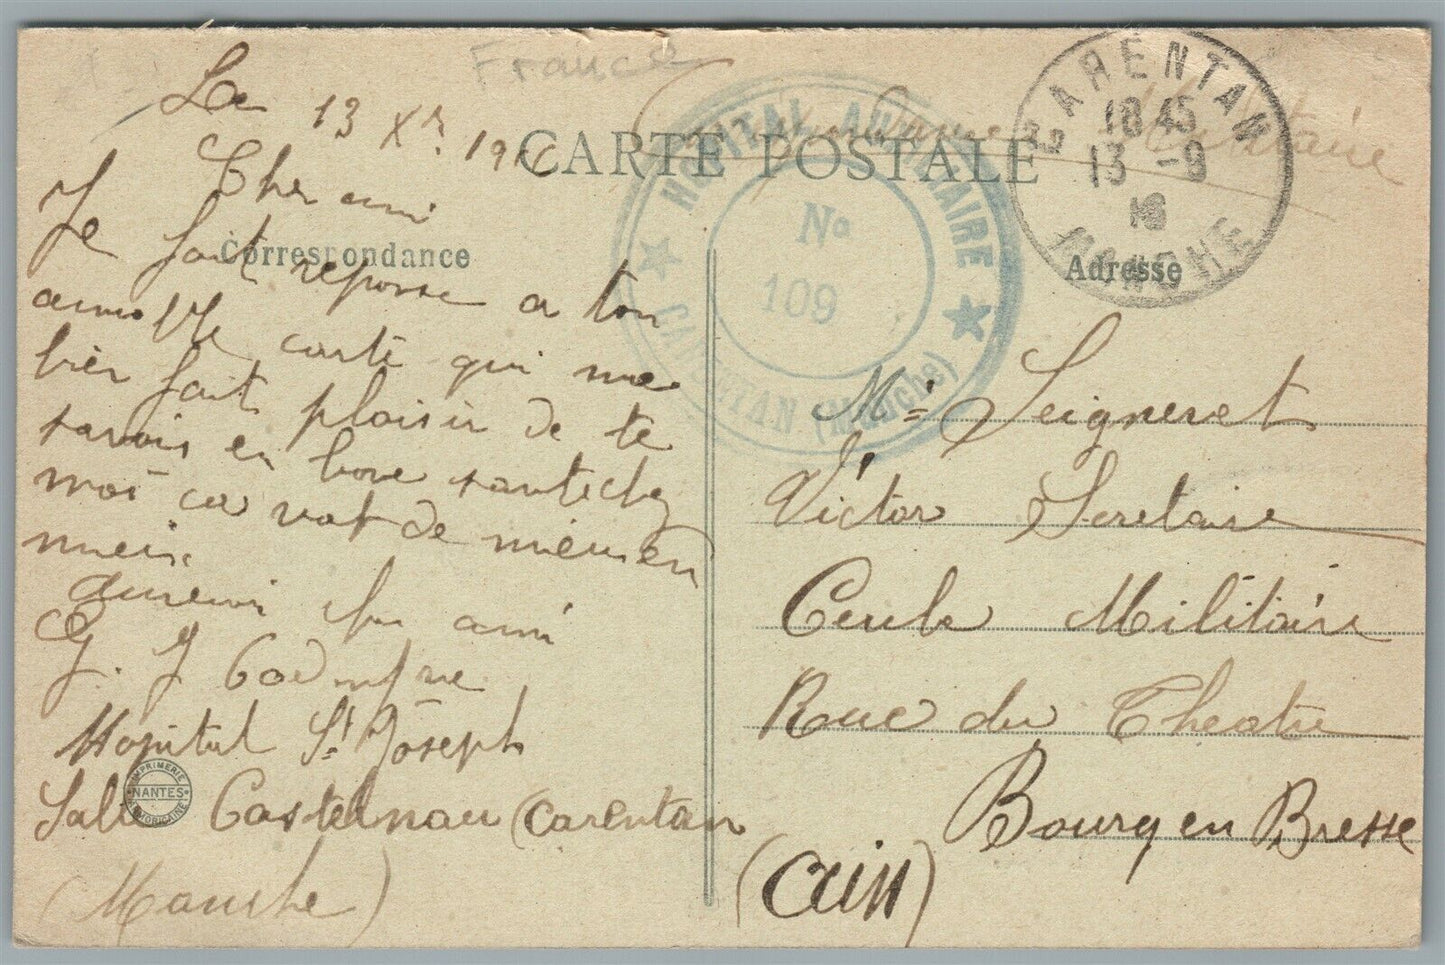 France
CARTE POSTALE
Correspondance
Adresse
Militaire
HOPITAL AUXILIAIRE
No
109
CARENTAN (Manche)
CARENTAN
18 45
13 - 9
16
MANCHE
Le 13 Xr 191
Cher ami
Je fait reponse a ton
carte qui me
bien fait plaisir de te
savoir en bone sante chez
moi ca vat de mieu en
mieix
ton ami
G. J
Hopital St Joseph
Salle Castelnau (Carentan
(Manche)
IMPRIMERIE
NANTES
ARMORICAINE
Mr Seigneret
Victor Secretaire
Cercle Militaire
Rue du Theatre
Bourg en Bresse
(Ain)